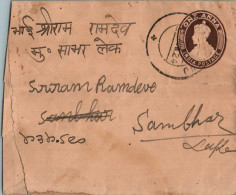 ONE ANNA
INDIA POSTAGE
भाई श्रीराम रामदेव
मु॰ साभा लेक
Sriram Ramdeve
Sambhar
Sambhar
Lake